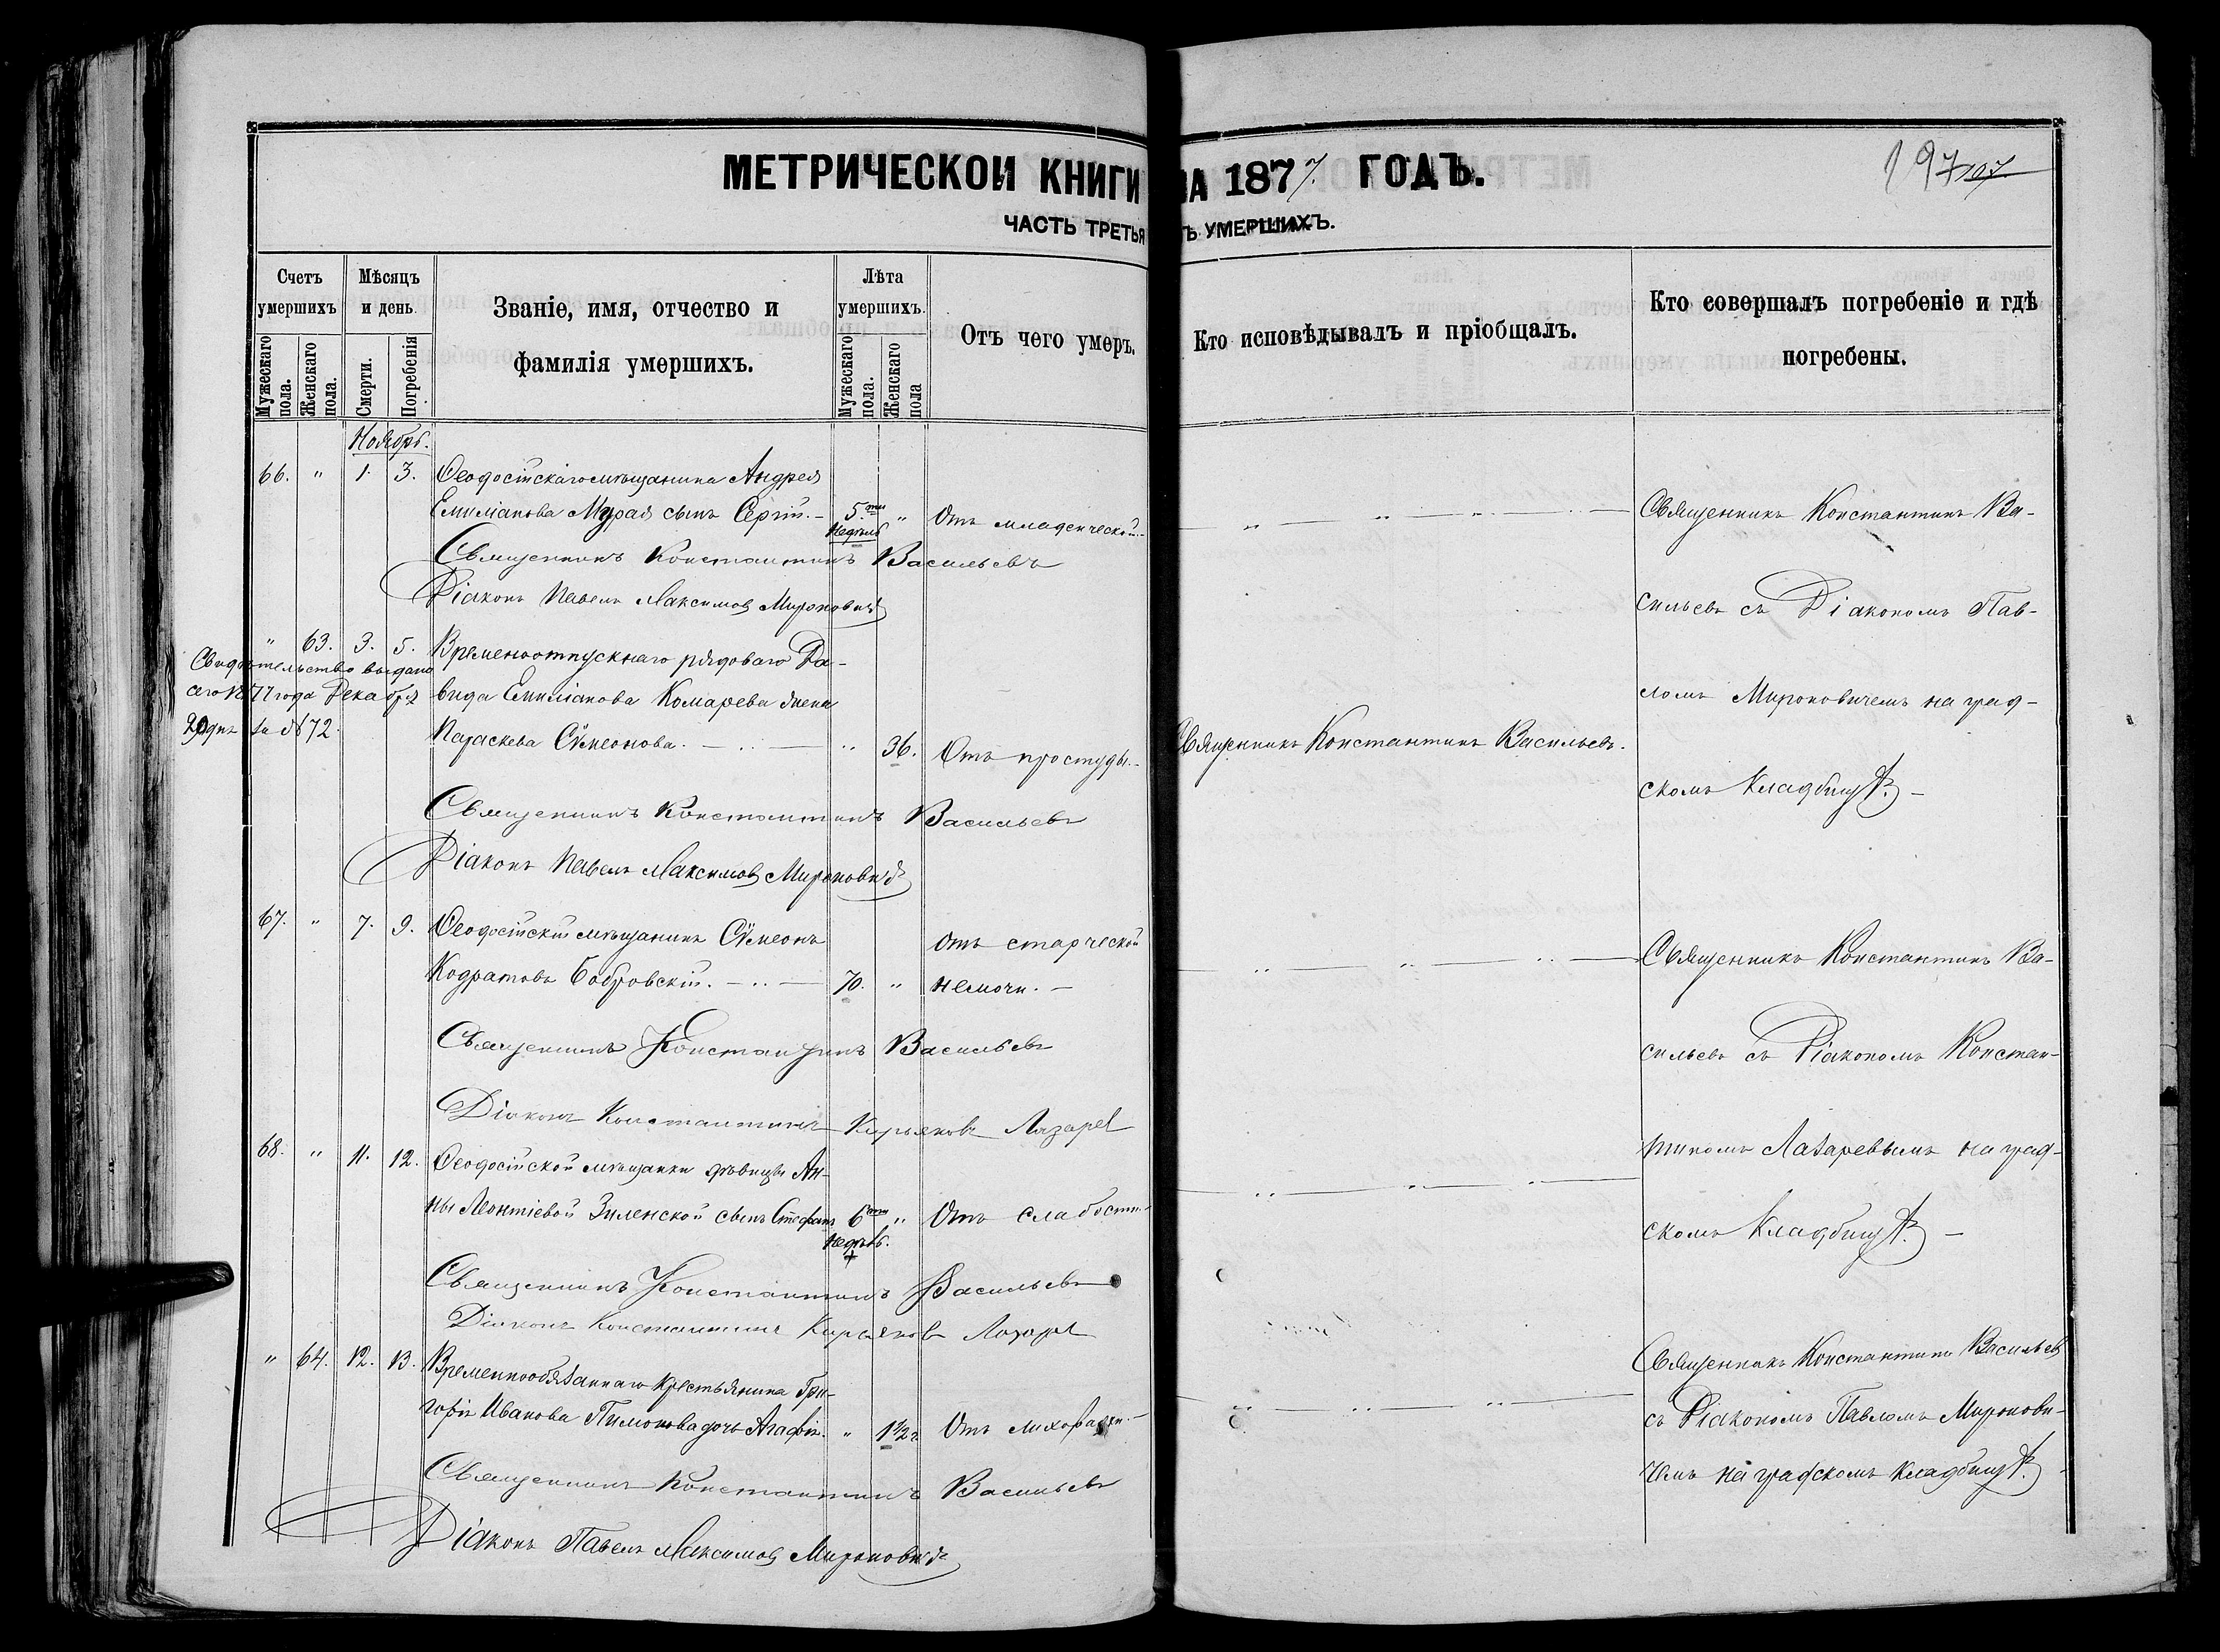 МЕТРИЧЕСКОЙ КНИГИ НА 1877 ГОДЪ.
197
107
ЧАСТЬ ТРЕТЬЯ Ъ УМЕРШИХЪ.
Счетъ умершихъ
Мужескаго пола.
Женскаго пола.
Мѣсяцъ и день.
Смерти.
Погребенія
Званіе, имя, отчество и фамилія умершихъ.
Лѣта умершихъ.
Мужескаго пола.
Женскаго пола
Отъ чего умеръ.
Кто исповѣдывалъ и пріобщалъ.
Кто совершалъ погребеніе и гдѣ погребены.
Ноябрь.
66. " 1. 3. Ѳеодосійскаго мѣщанина Андрея
Емиліанова Мурая сынъ Сергій. – 5ти недѣль " Отъ младенческой.
Священникъ Константинъ Ва-
Священникъ Константинъ Васильевъ
Діаконъ Павелъ Максимовъ Мироновичъ
сильевъ съ Діакономъ Пав-
" 63. 3. 5. Временноотпускнаго рядоваго Да-
Свидѣтельство выдано
сего 1877 года Декабря
20 дня за № 72.
вида Емиліанова Комарева жена
ломъ Мироновичемъ на град-
Параскева Сѵмеонова. " 36. Отъ простуды. Священникъ Константинъ Васильевъ.
скомъ кладбищѣ. –
Священникъ Константинъ Васильевъ
Діаконъ Павелъ Максимовъ Мироновичъ
67. " 7. 9. Ѳеодосійскій мѣщанинъ Сѵмеонъ Отъ старческой
Кодратовъ Бобровскій. 70. " немочи. –
Священникъ Константинъ Ва-
Священникъ Константинъ Васильевъ
сильевъ съ Діакономъ Констан-
Діаконъ Константинъ Кирьяковъ Лазарев
68. " 11. 12. Ѳеодосійской мѣщанки дѣвицы Ан-
тиномъ Лазаревымъ на град-
ны Леонтіевой Зиленской сынъ Стефанъ 6ти недѣль. " Отъ слабости.
скомъ кладбищѣ. –
Священникъ Константинъ Васильевъ
Діаконъ Константинъ Кирьяковъ Лазарев
" 64. 12. 13. Временнообязаннаго крестьянина Гри-
Священникъ Константинъ Васильевъ
горія Иванова Пимонова дочь Агафія. " 1 1/2 г. Отъ лихорадки.
съ Діакономъ Павломъ Миронови-
Священникъ Константинъ Васильевъ
чемъ на градскомъ кладбищѣ.
Діаконъ Павелъ Максимовъ Мироновичъ